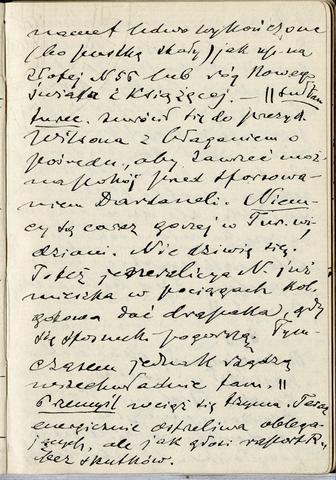 nawet ledwo wykończone
(bo pustką stały) jak np. na
Złotej N 55 lub róg Nowego
świata i Książęcej. — || Sułtan
turec. zwrócił się do prezyd.
Wilsona z błaganiem o
pośredn., aby zawrzeć moż-
na pokój przed sforsowa-
niem Dardaneli. Niem-
cy są coraz gorzej w Tur. wi-
dziani. Nic dziwię się.
Toteż generalicja N. już
mieszka w pociągach kol.
gotowa dać drapaka, gdy
się stosunk. pogorszą. Tym-
czasem jednak rządzą
wszechwładnie tam. ||
Przemyśl wciąż się trzyma. Teraz
energicznie ostreliwa oblega-
jących, ale jak głosi raport R.,
bez skutków.